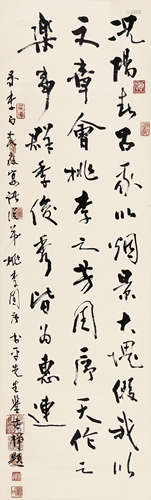 況陽春召我以煙景大塊假我以
文章會桃李之芳園序天倫之
樂事群季俊秀皆為惠連
李白春夜宴諸從弟桃李園序 先生